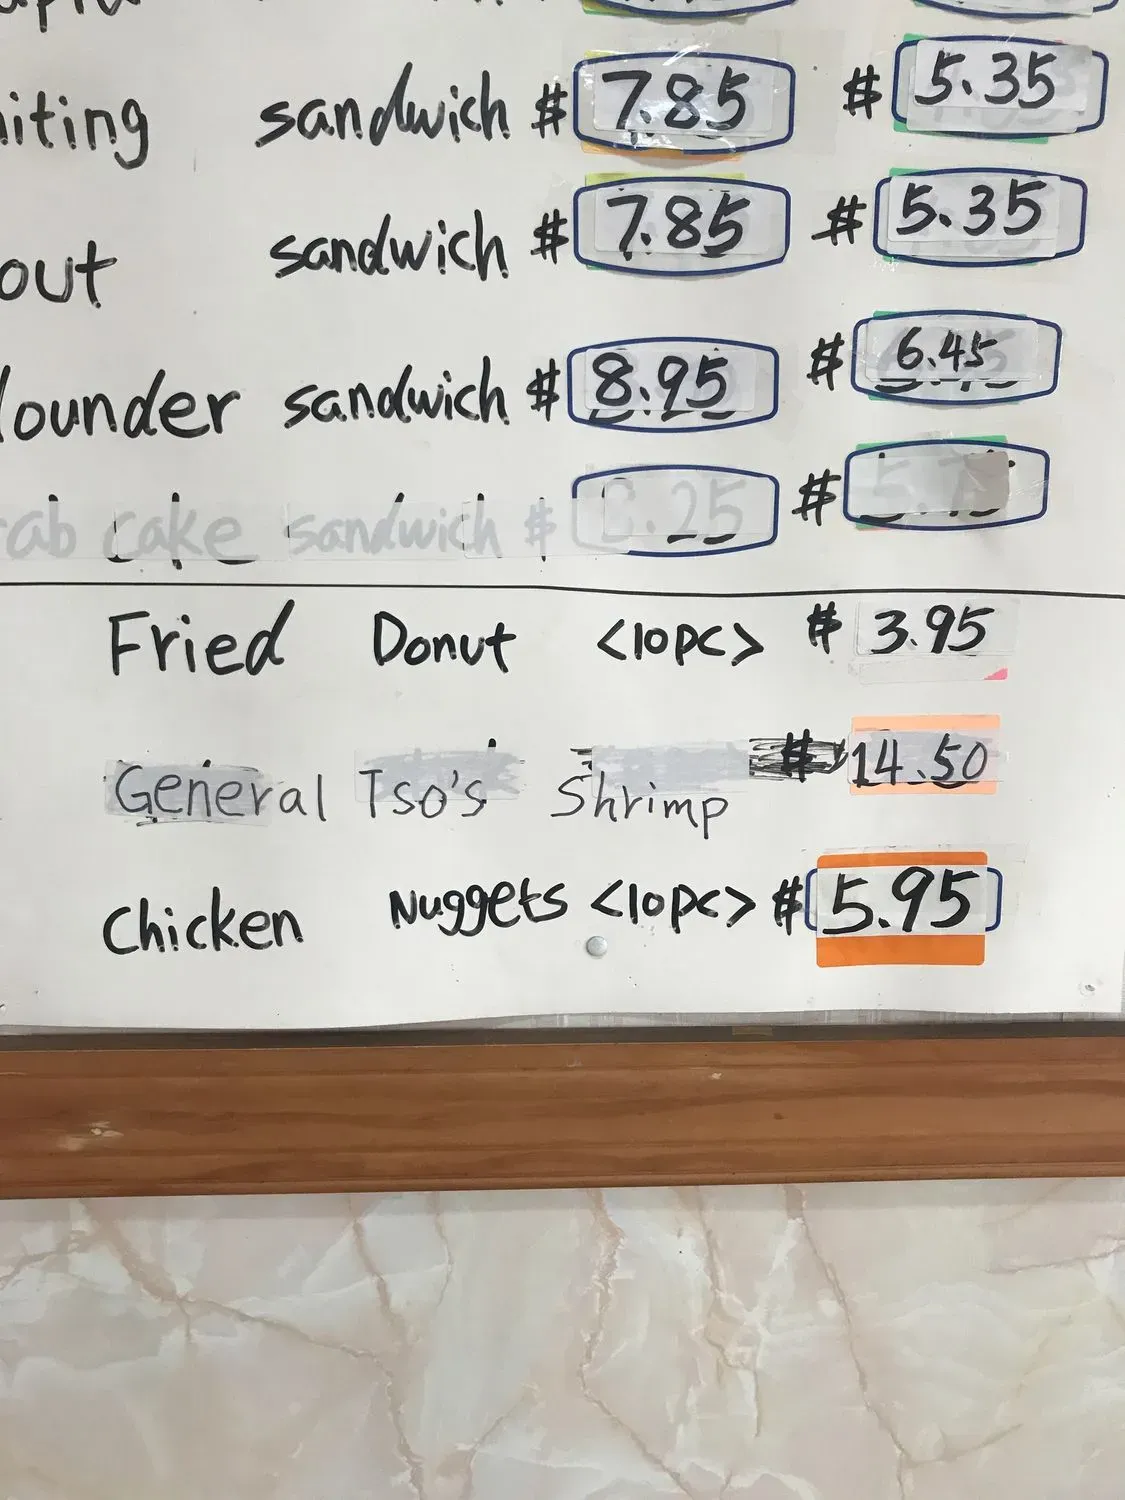 iting sandwich $ 7.85 $ 5.35
out sandwich $ 7.85 $ 5.35
lounder sandwich $ 8.95 $ 6.45
ab cake sandwich $ .25 $
Fried Donut <10pc> $ 3.95
General Tso's Shrimp $ 14.50
Chicken Nuggets <10pc> $ 5.95